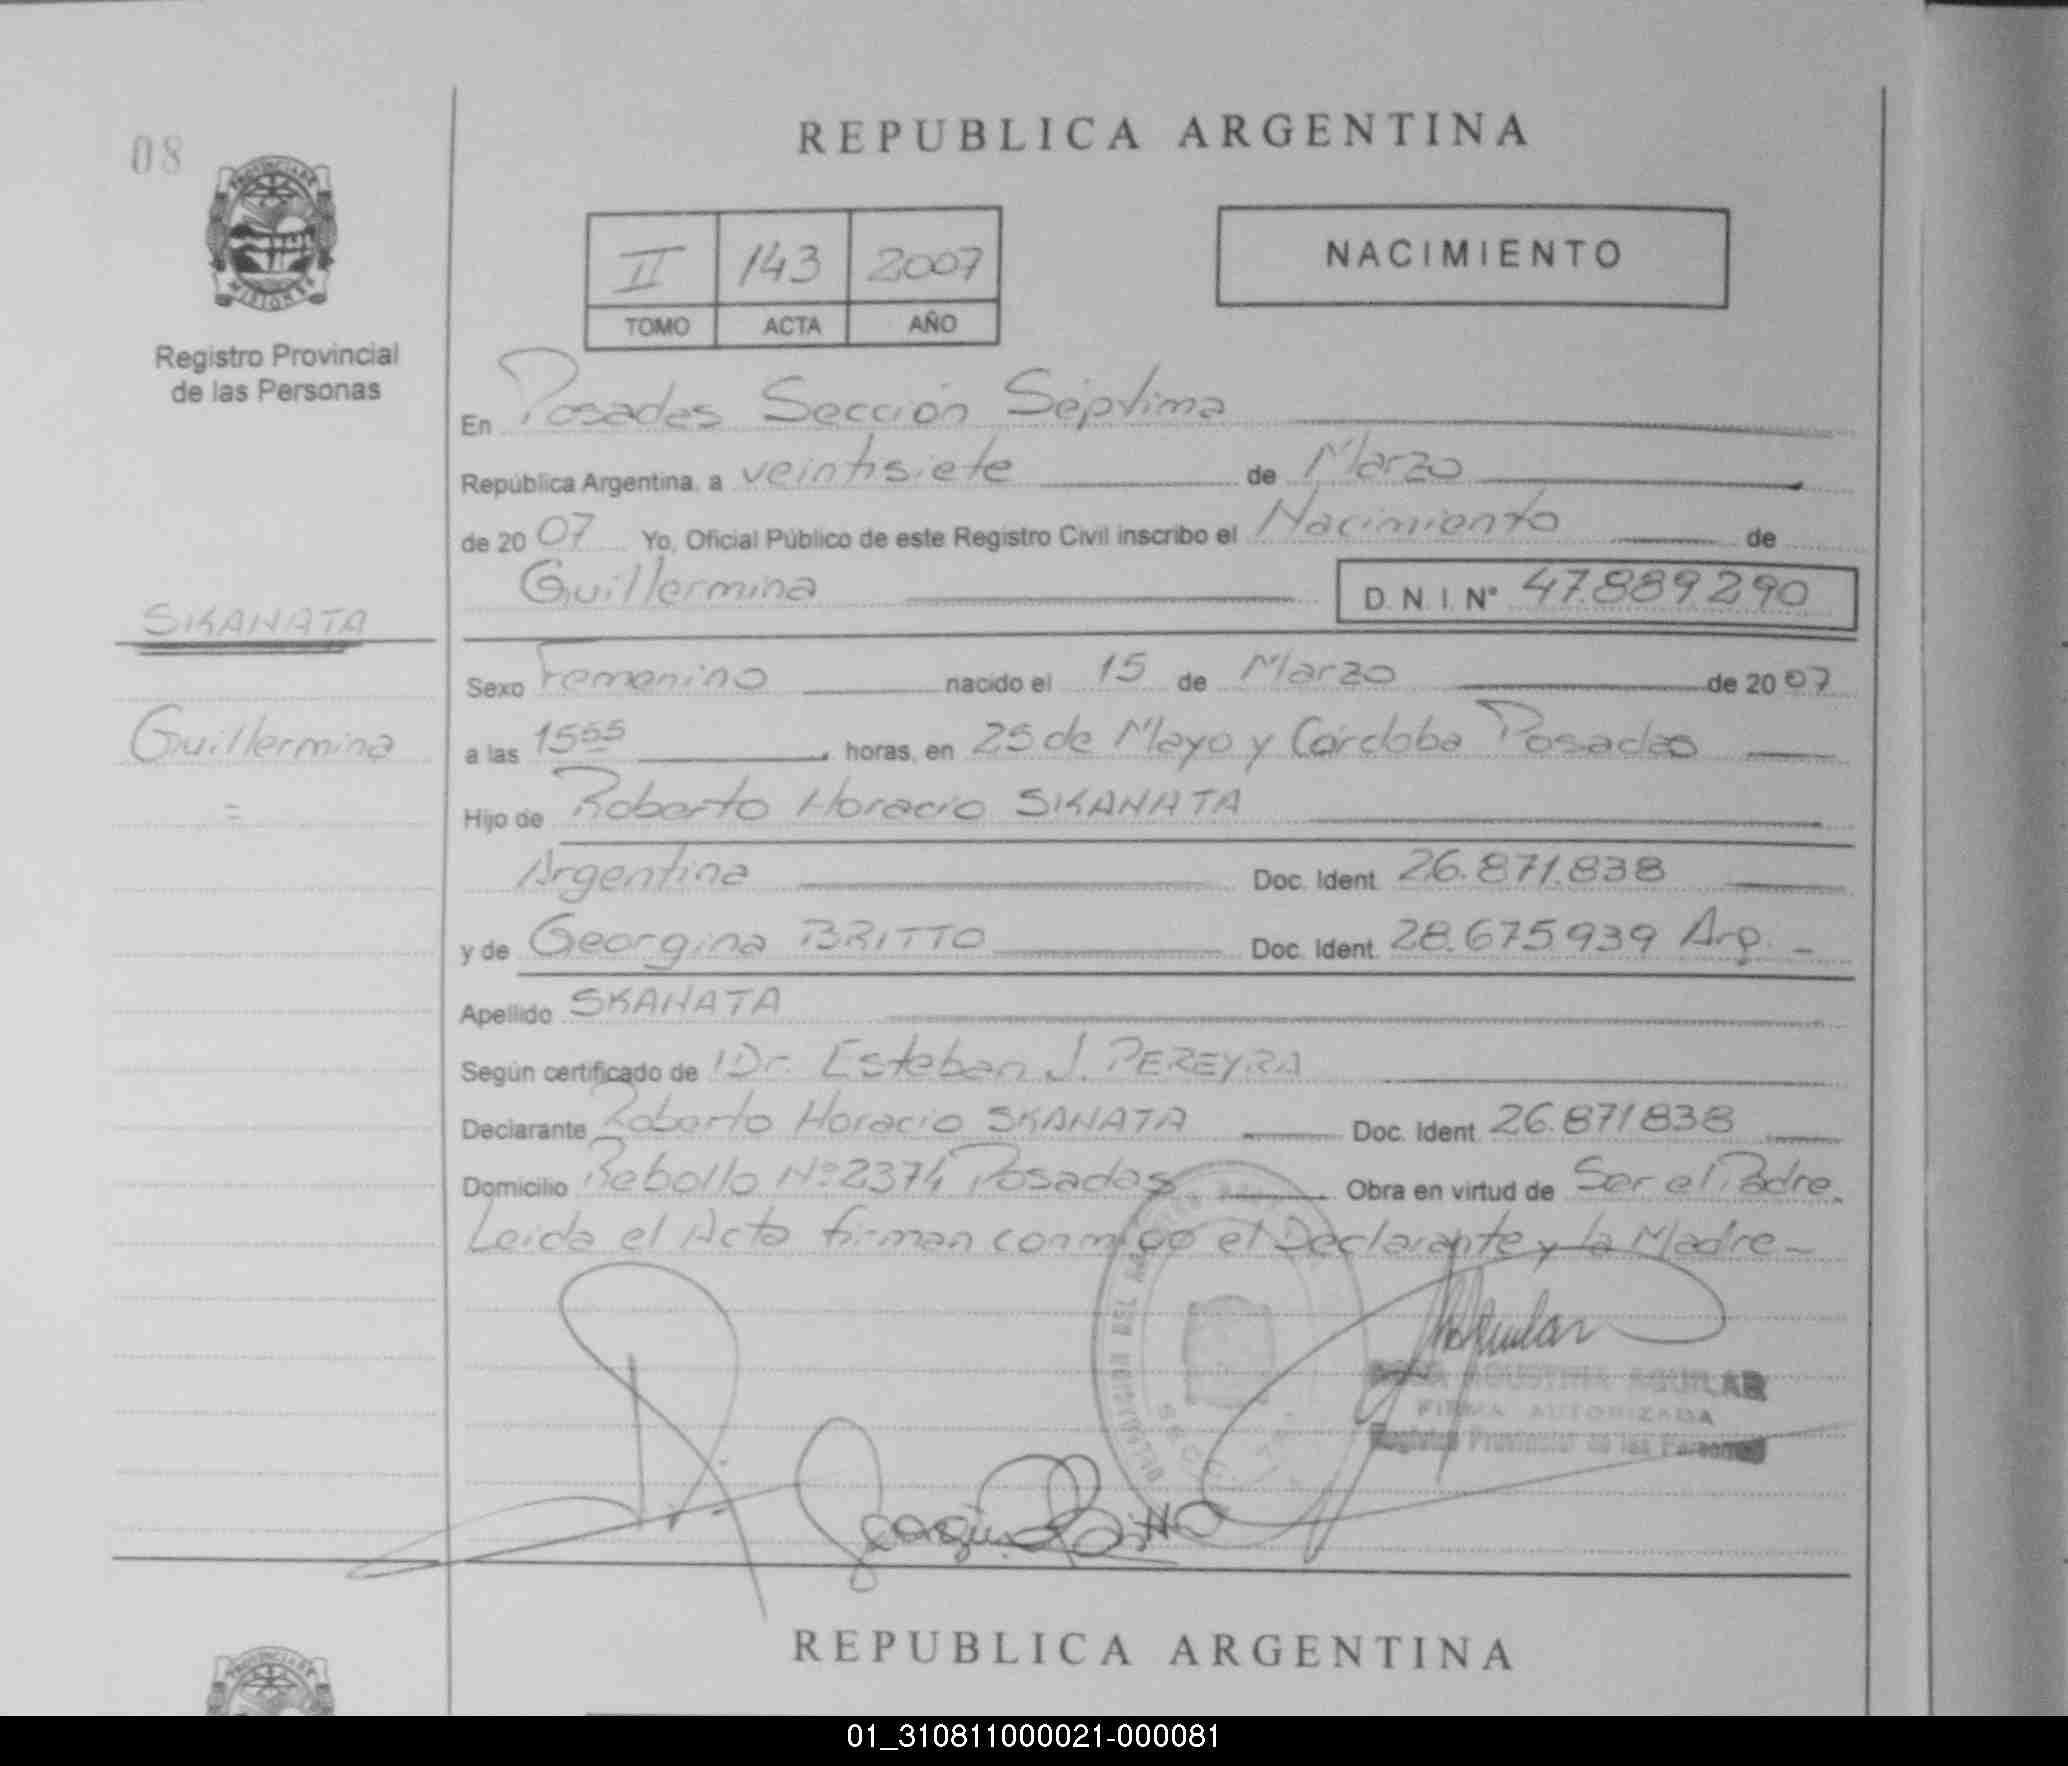 08
PROVINCIA DE
MISIONES
Registro Provincial
de las Personas
REPUBLICA ARGENTINA
II 143 2007
TOMO ACTA AÑO
NACIMIENTO
En Posadas Sección Séptima
República Argentina, a veintisiete de Marzo
de 2007 Yo, Oficial Público de este Registro Civil inscribo el Nacimiento de
Guillermina D.N.I. N° 47.889.290
SKANATA
Sexo Femenino nacido el 15 de Marzo de 2007
Guillermina
a las 15 55 horas, en 25 de Mayo y Córdoba Posadas
Hijo de Roberto Horacio SKANATA
=
Argentina Doc. Ident. 26.871.838
y de Georgina BRITTO Doc. Ident. 28.675.939 Arg. -
Apellido SKANATA
Según certificado de Dr. Esteban J. PEREYRA
Declarante Roberto Horacio SKANATA Doc. Ident. 26.871838
Domicilio Rebollo Nº 2374 Posadas Obra en virtud de Ser el Padre.
Leida el Acta firman conmigo el Declarante y la Madre -
AGUSTINA AGUILAR
FIRMA AUTORIZADA
Registro Provincial de las Personas
Georgina Britto
REPUBLICA ARGENTINA
PROVINCIA DE
01_310811000021-000081